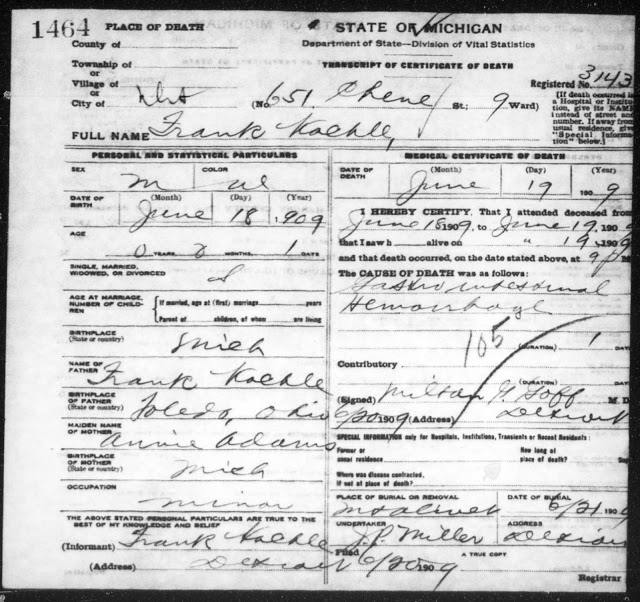 1464
PLACE OF DEATH
County of
Township of
or
Village of
or
City of Det (No. 651 Chene St.; 9 Ward)
STATE OF MICHIGAN
Department of State—Division of Vital Statistics
TRANSCRIPT OF CERTIFICATE OF DEATH
Registered No. 3143
[If death occurred in
a Hospital or Institu-
tion, give its NAME
instead of street and
number. If away from
usual residence, give
"Special Informa-
tion" below.]
FULL NAME Frank Koehle,
PERSONAL AND STATISTICAL PARTICULARS
SEX M COLOR W
DATE OF BIRTH (Month) (Day) (Year)
June 18 1909
AGE
0 YEARS 0 MONTHS, 1 DAYS
SINGLE, MARRIED,
WIDOWED, OR DIVORCED S
AGE AT MARRIAGE,
NUMBER OF CHILD-
REN
If married, age at (first) marriage years
Parent of children, of whom are living
BIRTHPLACE
(State or country) Mich
NAME OF
FATHER Frank Koehle
BIRTHPLACE
OF FATHER
(State or country) Toledo, Ohio
MAIDEN NAME
OF MOTHER Annie Adams
BIRTHPLACE
OF MOTHER
(State or country) Mich
OCCUPATION
minor
THE ABOVE STATED PERSONAL PARTICULARS ARE TRUE TO THE
BEST OF MY KNOWLEDGE AND BELIEF
(Informant) Frank Koehle
(Address) Detroit
MEDICAL CERTIFICATE OF DEATH
DATE OF
DEATH (Month) (Day) (Year)
June 19 1909
I HEREBY CERTIFY, That I attended deceased from
June 18 1909, to June 19, 1909
that I saw h alive on " 19, 1909
and that death occurred, on the date stated above, at 9 P M
The CAUSE OF DEATH was as follows:
Gastro intestinal
Hemorrhage
105
(DURATION) 1 DAYS
Contributory
(DURATION) DAYS
(Signed) Milton G Goff M. D.
6/20 1909 (Address) Detroit
SPECIAL INFORMATION only for Hospitals, Institutions, Transients or Recent Residents:
Former or
usual residence
How long at
place of death?
Where was disease contracted,
if not at place of death?
PLACE OF BURIAL OR REMOVAL DATE OF BURIAL
Mt Olivet 6/21 1909
UNDERTAKER ADDRESS
J.P. Miller Detroit
Filed 6/20 1909
A TRUE COPY
Registrar